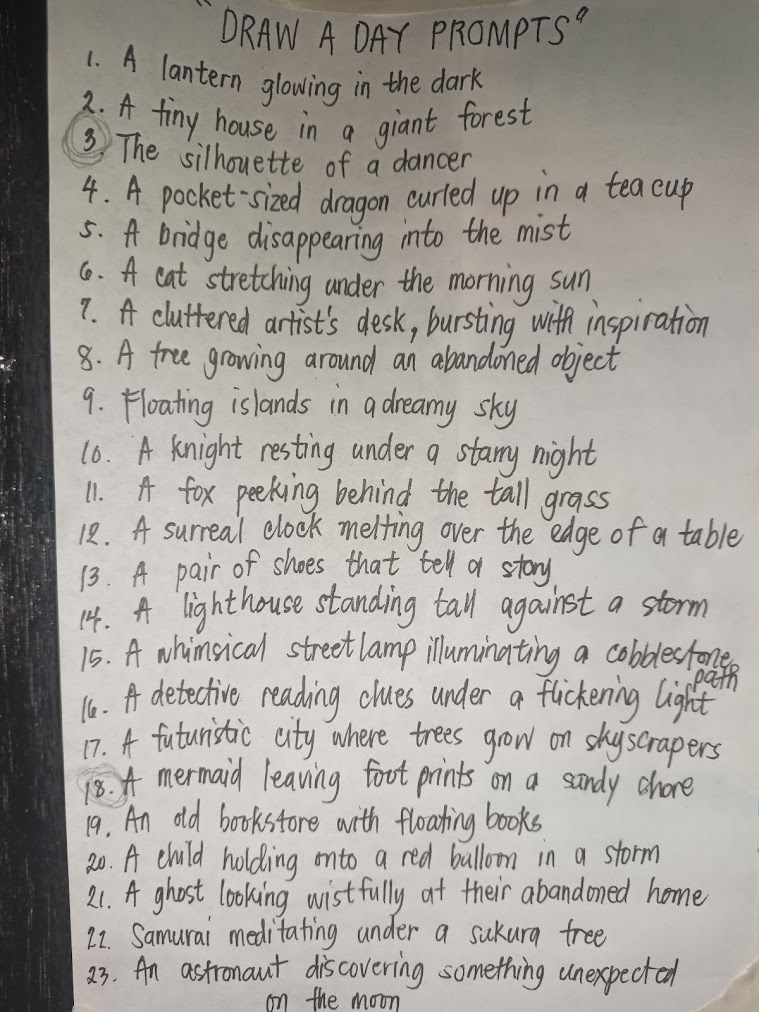 "DRAW A DAY PROMPTS"
1. A lantern glowing in the dark
2. A tiny house in a giant forest
3. The silhouette of a dancer
4. A pocket-sized dragon curled up in a tea cup
5. A bridge disappearing into the mist
6. A cat stretching under the morning sun
7. A cluttered artist's desk, bursting with inspiration
8. A tree growing around an abandoned object
9. Floating islands in a dreamy sky
10. A knight resting under a starry night
11. A fox peeking behind the tall grass
12. A surreal clock melting over the edge of a table
13. A pair of shoes that tell a story
14. A lighthouse standing tall against a storm
15. A whimsical streetlamp illuminating a cobblestone
path
16. A detective reading clues under a flickering light
17. A futuristic city where trees grow on skyscrapers
18. A mermaid leaving foot prints on a sandy chore
19. An old bookstore with floating books
20. A child holding onto a red balloon in a storm
21. A ghost looking wistfully at their abandoned home
22. Samurai meditating under a sakura tree
23. An astronaut discovering something unexpected
on the moon